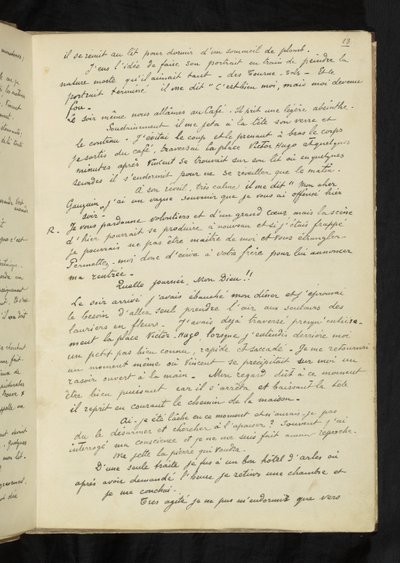 13
il se remit au lit pour dormir d'un sommeil de plomb.
J'eus l'idée de faire son portrait en train de peindre la
nature morte qu'il aimait tant - des Tourne-sols - Et le
portrait terminé il me dit "C'est bien moi, mais moi devenu
fou"
Le soir même nous allâmes au Café. Il prit une légère absinthe.
Soudainement il me jeta à la tête son verre et
le contenu. J'évitai le coup et le prenant à bras le corps
je sortis du café, traversai la place Victor Hugo et quelques
minutes après Vincent se trouvait sur son lit où en quelques
secondes il s'endormit pour ne se reveiller que le matin.
A son réveil, très calme, il me dit "Mon cher
Gauguin, j'ai un vague souvenir que je vous ai offensé hier
soir -
R. Je vous pardonne volontiers et d'un grand cœur mais la scène
d'hier pourrait se produire à nouveau et si j'étais frappé
je pourrais ne pas être maître de moi et vous étrangler -
Permettez-moi donc d'écrire à votre frère pour lui annoncer
ma rentrée -
Quelle journée, Mon Dieu!!
Le soir arrivé j'avais ébauché mon dîner et j'éprouvai
le besoin d'aller seul prendre l'air aux senteurs des
lauriers en fleurs. J'avais déjà traversé presqu'entière-
ment la place Victor Hugo lorsque j'entendis derrière moi
un petit pas bien connu, rapide et saccadé - Je me retournai
au moment même où Vincent se précipitait sur moi un
rasoir ouvert à la main - Mon regard dut à ce moment
être bien puissant car il s'arrêta et baissant la tête
il reprit en courant le chemin de la maison -
Ai-je été lâche en ce moment et n'aurais-je pas
du le désarmer et chercher à l'apaiser? Souvent j'ai
interrogé ma conscience et je ne me suis fait aucun reproche.
Me jette la pierre qui voudra -
D'une seule traite je fus à un bon hôtel d'Arles où
après avoir demandé l'heure je retins une chambre et
je me couchai -
Très agité je ne pus m'endormir que vers